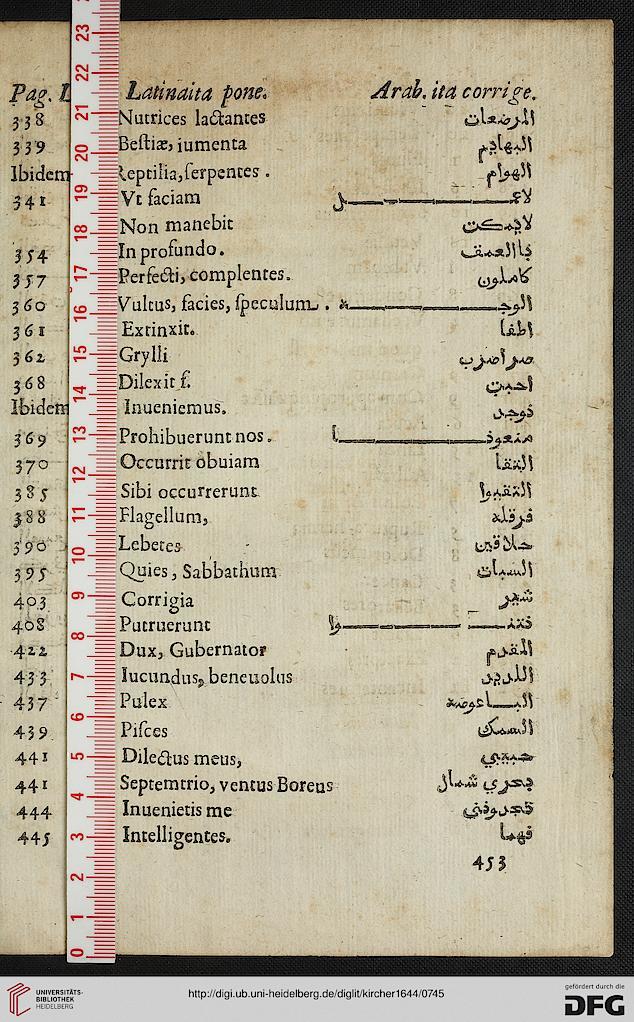 Pag. L Latina ita pone. Arab. ita corrige.
338 Nutrices lactantes المرضعات
339 Bestiæ, iumenta البهايم
Ibidem Reptilia, serpentes . الهوام
341 Vt faciam لاعمل
Non manebit لايمكث
354 In profundo. باالعمق
357 Perfecti, complentes. كاملون
360 Vultus, facies, speculum . الوجه
361 Extinxit. اطفا
362 Grylli
368 Dilexit f. احبت
Ibidem Inueniemus. نوجد
369 Prohibuerunt nos. منعونا
370 Occurrit obuiam التقا
385 Sibi occurrerunt
388 Flagellum, فرقلة
390 Lebetes حلاقين
395 Quies, Sabbathum السبات
403 Corrigia شير
408 Putruerunt
422 Dux, Gubernator المقدم
433 Iucundus, beneuolus اللديد
437 Pulex الباعوضة
439 Pisces السمك
441 Dilectus meus, حبيبي
441 Septemtrio, ventus Boreus بحري شمال
444 Inuenietis me تجدوني
445 Intelligentes. فهما
453
23
22
21
20
19
18
17
16
15
14
13
12
11
10
9
8
7
6
5
4
3
2
1
0
UNIVERSITÄTS-
BIBLIOTHEK
HEIDELBERG
http://digi.ub.uni-heidelberg.de/diglit/kircher1644/0745
gefördert durch die
DFG